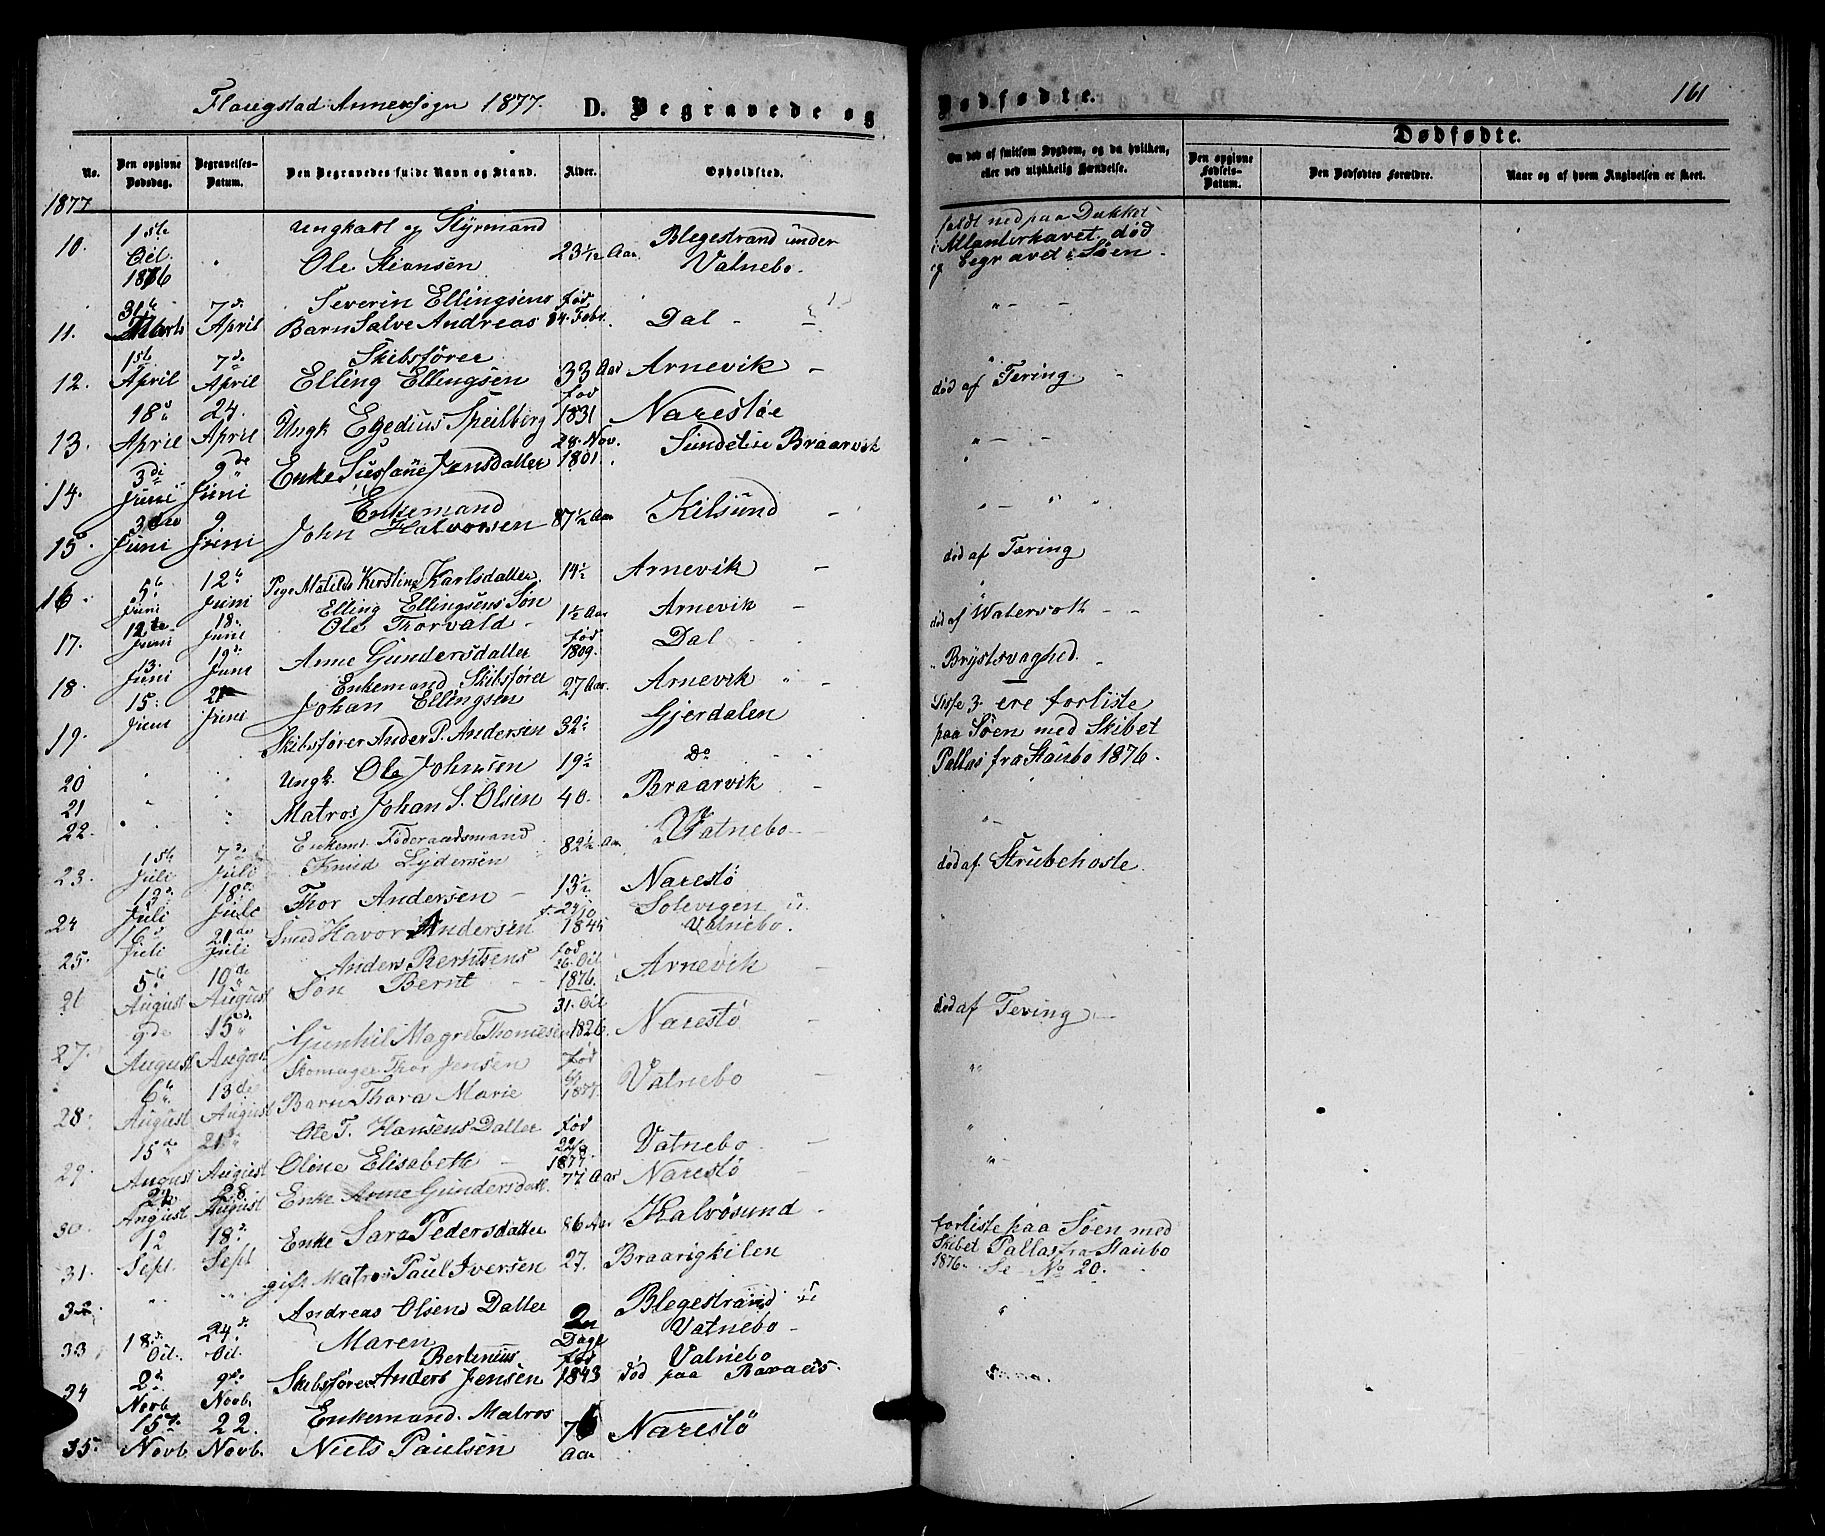 Flaugstad Annexsogn 1877. D. Begravede og
No.
Den opgivne Dødsdag.
Begravelses-Datum.
Den Begravedes fulde Navn og Stand.
Alder.
Opholdssted.
1877
10. 1ste Oct. 1876 Ungkarl og Styrmand Ole Stiansen 23 1/2 Aar Blegestrand under Vatnebo.
11. 31 Marts 7de April Severin Ellingsens Barn Salve Andreas fød 24. Febr. Dal -
12. 1ste April 7de April Skibsfører Elling Ellingsen 33 Aar Arnevik -
13. 18d April 24. April Ungk Egedius Speilberg fød 1831 Narestøe
14. 3di Juni 9de Juni Enke Susanne Jensdatter 28. Nov. 1801. Sundetsu Braarvik
15. 3die Juni 9. Juni Enkemand John Halvorsen 87 1/2 Aar Kilsund -
16. 5te Juni 12te Juni Pige Matilde Kirstine Karlsdatter 14 1/2 Arnevik -
17. 12te Juni 18. Juni Elling Ellingsens Søn Ole Thorvald - 1 1/2 Aar Arnevik -
18. 13. Juni 19d. Juni Anne Gundersdatter fød 1809. Dal -
19. 15. Juni 21 Juni Enkemand Skibsfører Johan Ellingsen 27 Aar. Arnevik " -
20 Skibsfører Ander P. Andersen 32 1/2 Gjerdalen
21 Ungk. Ole Johnsen 19 1/2 Do
22. Matros Johan S. Olsen 40. Braarvik -
23. 1ste Juli 7de Juli Enkemd. Føderaadsmand Knud Lydersen 82 1/2 Aar Vatnebo -
24 13d Juli 18de Juli Thor Andersen - 13 1/2 Narestø
25. 16d Juli 21de Juli Smed Havor Andersen f. 24/10 1845 Solevigen u. Vatnebo.
26 5te August 10de August Anders Berntsens Søn Bernt fød 26. Oct 1876. Arnevik -
27. 9de August 15de August Gunhil Magret Thomesen 31. Oct 1826. Narestø -
28. 6te August 13de August Skomager Thor Jensen Barn Thora Marie fød 1877. Vatnebo -
29. 15de August 21d August Ole T. Hansens Datter Oline Elisabeth - fød 1877. Vatnebo. -
30. August 28 August Enke Anne Gundersdatt. 77 Aar Narestø -
31. 12 Sept. 18d. Sept Enke Sara Pedersdatter 86 Aar Kalvøsund -
32. gift Matros Paul Iversen 27. Braarigkilen
33. 18d. Oct. 24d. Oct. Andreas Olsens Datter Maren Dage Blegestrand u Vatnebo -
34 2d. Novb. 9de Novb. Skibsfører Anders Bertinius Jensen fød 1843 Vatnebo død paa
35. 15d. Novb. 22. Novb. Enkemand. Matros Niels Paulsen 76 Aar Narestø
Dødfødte.
161
Om død af smitsom Sygdom, og da hvilken, eller ved ulykkelig Hændelse.
Dødfødte.
Den opgivne Fødsels-Datum.
Den Dødfødtes Forældre.
Naar og af hvem Angivelsen er skeet.
faldt ned paa Dækket
i Atlanterhavet, død
og begravet i Søen.
" - -
død af Tering. -
" - -
" -
død af Tæring
død af Watersott - -
" Brystsvaghed. -
Disse 3 ere forliste
paa Søen med Skibet
Pallas fra Staubo 1876.
" -
død af Strubehoste.
død af Tering -
"
"
" -
forliste paa Søen med
Skibet Pallas fra Staubo
1876. Se No 20.
"